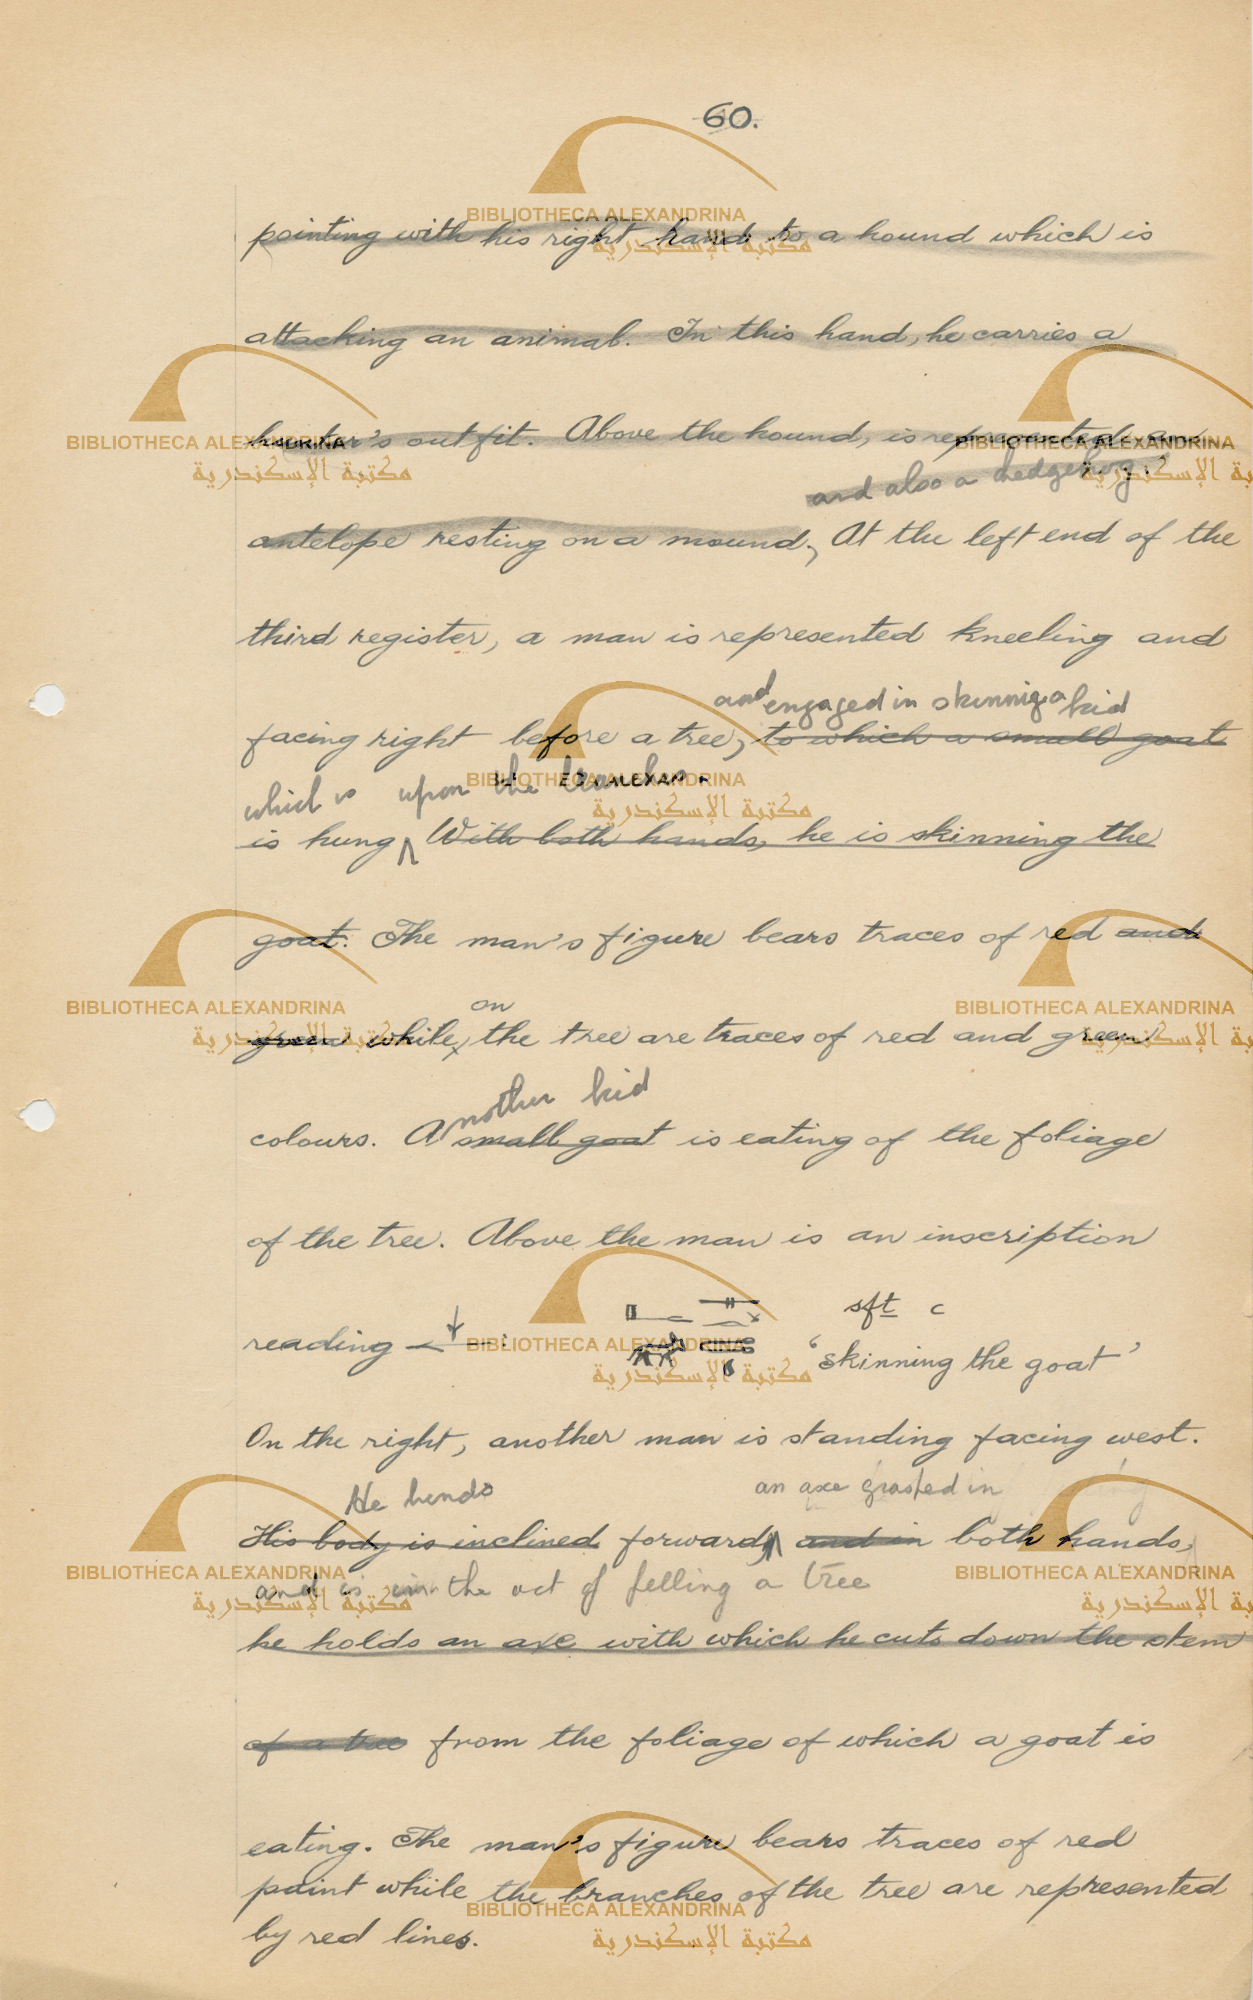 60.
pointing with his right hand to a hound which is
attacking an animal. In this hand, he carries a
hunter's outfit. Above the hound, is represented an
and also a hedgehog.
antelope resting on a mound, At the left end of the
third register, a man is represented kneeling and
and engaged in skinning a kid
facing right before a tree, to which a small goat
which is upon the branches.
is hung With both hands, he is skinning the
goat. The man's figure bears traces of red and
on
green while, the tree are traces of red and green
another kid
colours. A small goat is eating of the foliage
of the tree. Above the man is an inscription
sft c
reading 'skinning the goat'
On the right, another man is standing facing west.
He bends an axe grasped in
His body is inclined forward, and in both hands,
and is in the act of felling a tree
he holds an axe with which he cuts down the stem
of a tree from the foliage of which a goat is
eating. The man's figure bears traces of red
paint while the branches of the tree are represented
by red lines.
BIBLIOTHECA ALEXANDRINA
مكتبة الإسكندرية